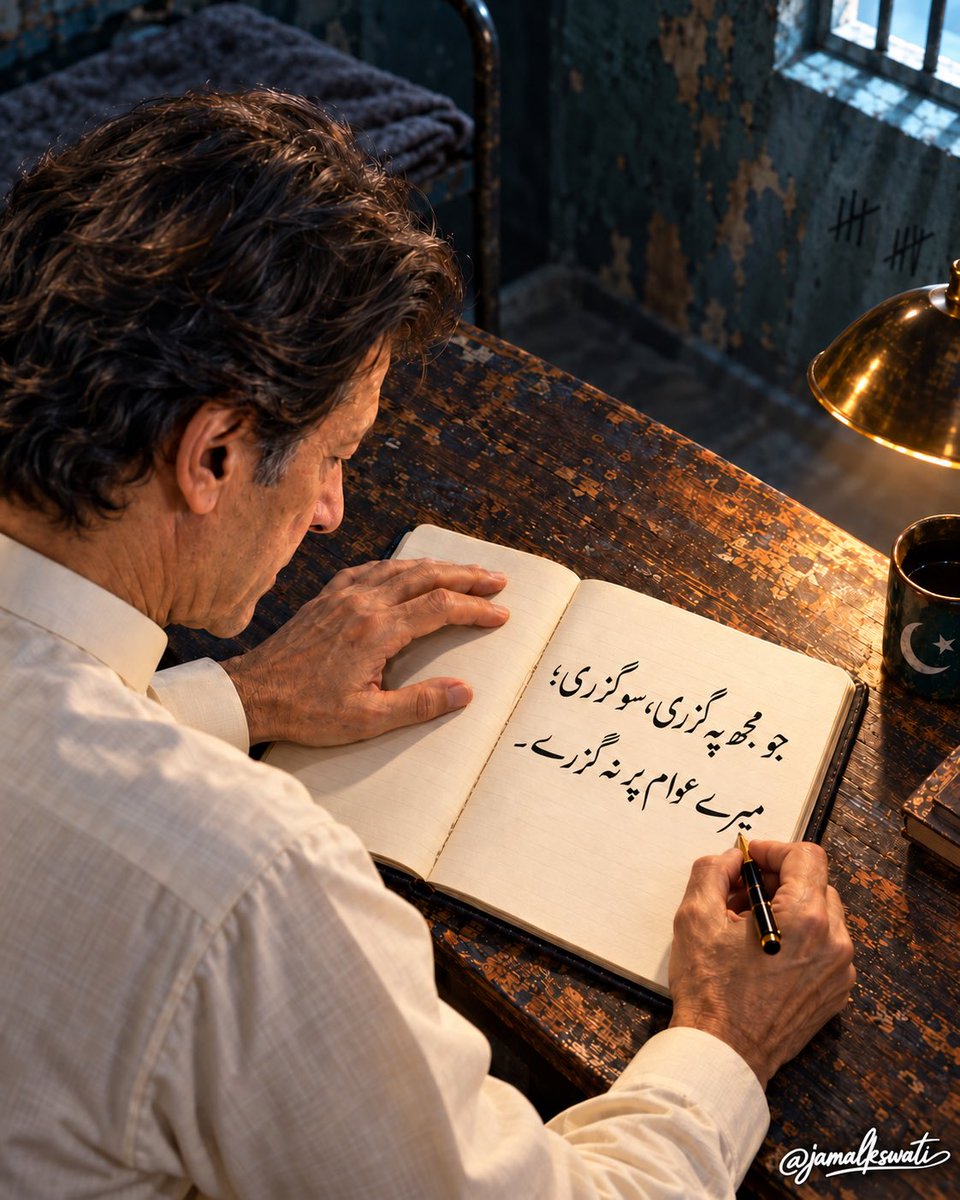 جو مجھ پہ گزری، سو گزری؛
میرے عوام پر نہ گزرے۔
@jamalkswati